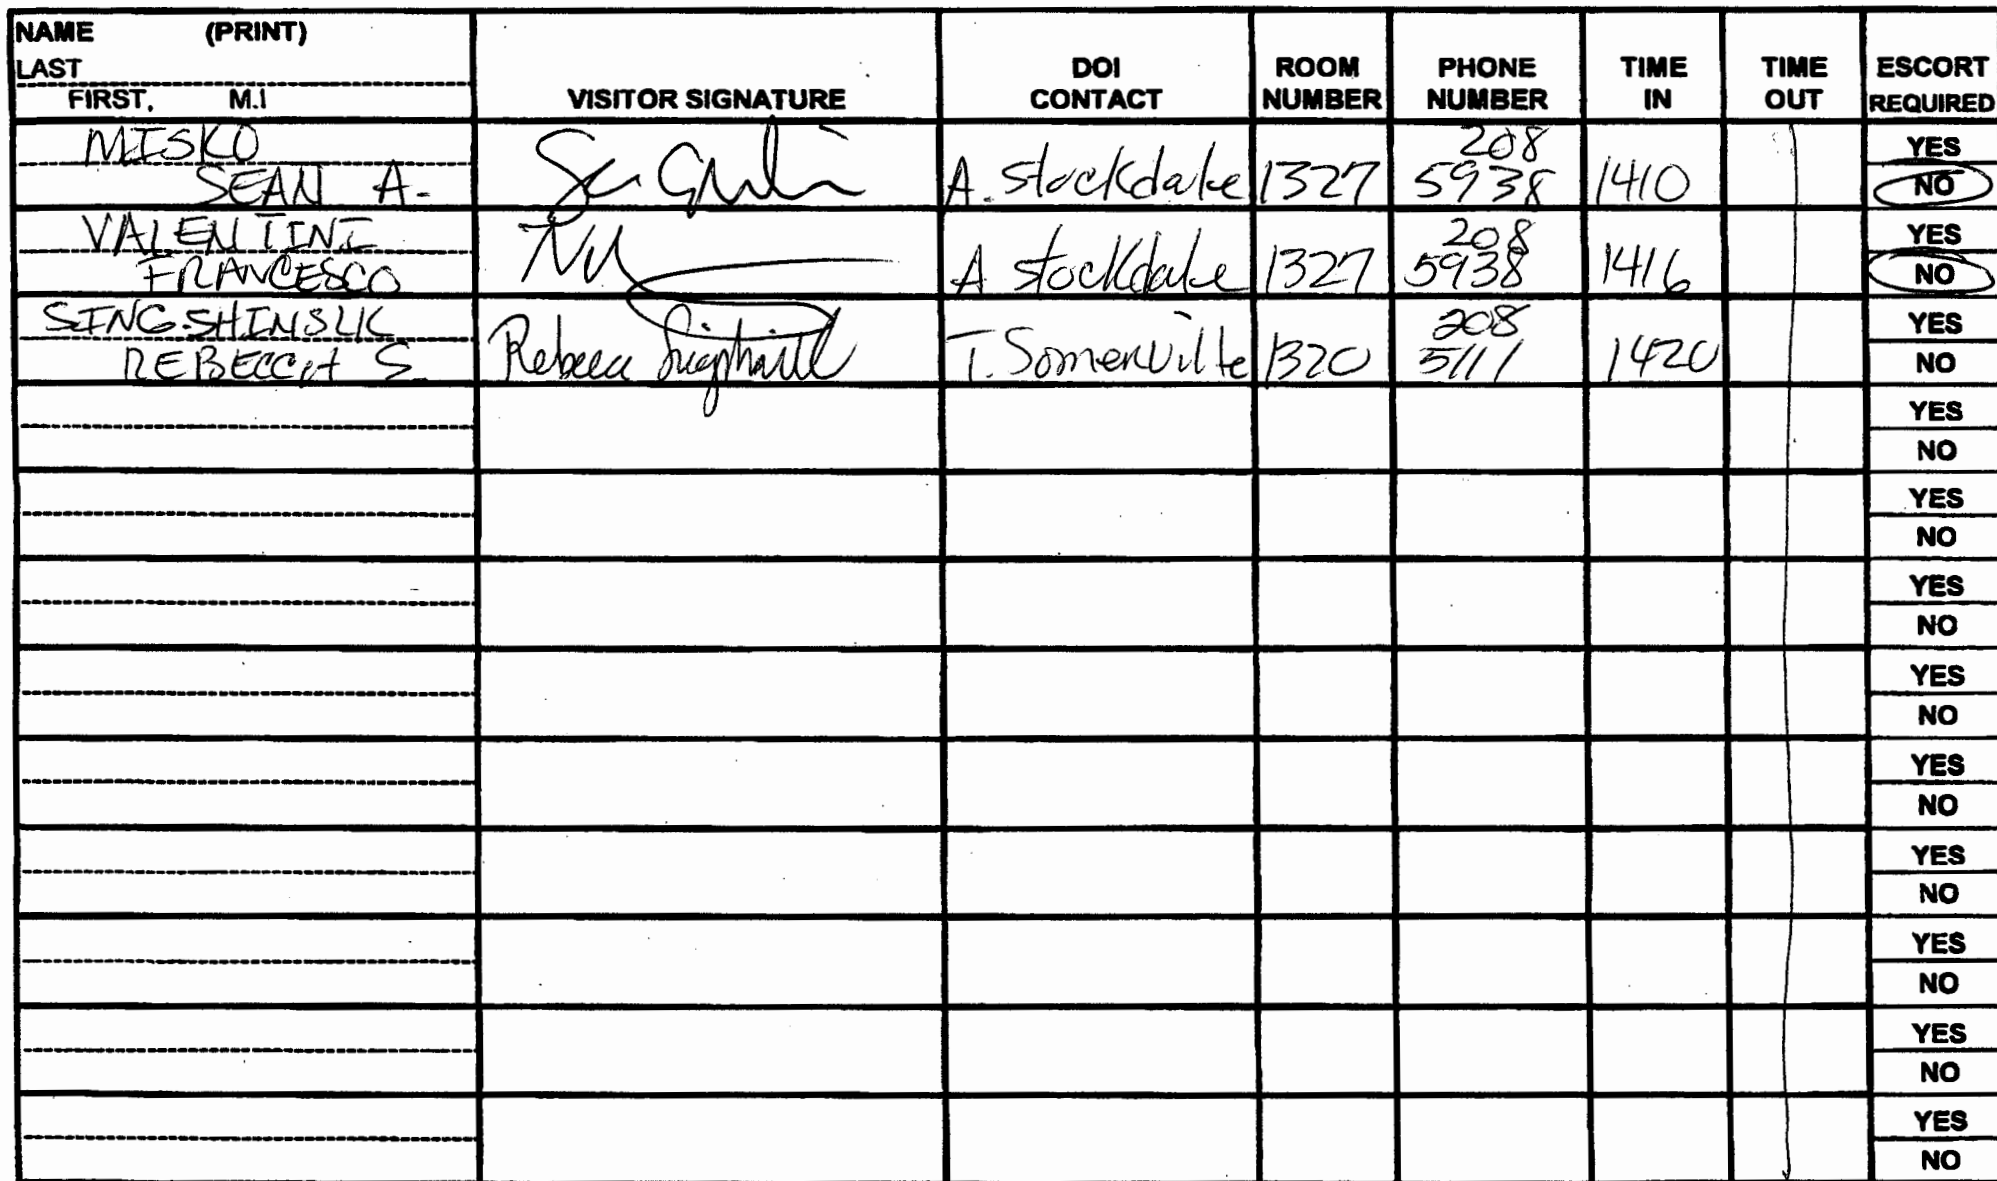 NAME (PRINT)
LAST
FIRST, M.I
VISITOR SIGNATURE
DOI
CONTACT
ROOM
NUMBER
PHONE
NUMBER
TIME
IN
TIME
OUT
ESCORT
REQUIRED
MISKO
SEAN A.
A. Stockdale
1327
208
5938
1410
YES
NO
VALENTINI
FRANCESCO
A Stockdale
1327
208
5938
1416
YES
NO
REBECCA S.
Rebecca
T. Somerville
1320
208
5111
1420
YES
NO
YES
NO
YES
NO
YES
NO
YES
NO
YES
NO
YES
NO
YES
NO
YES
NO
YES
NO